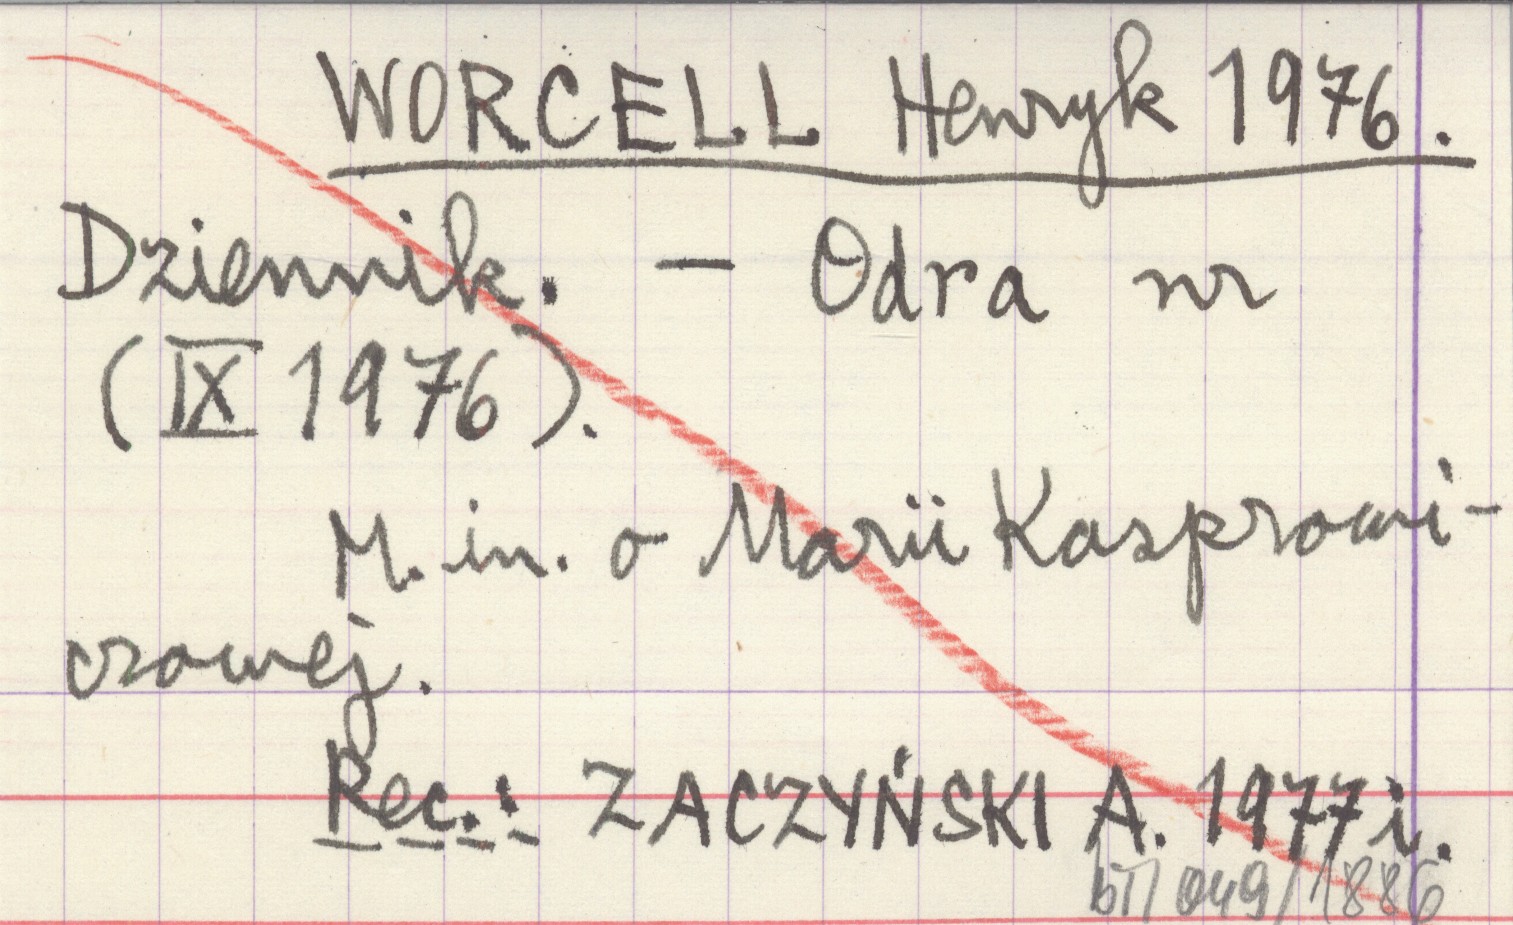 WORCELL Henryk 1976.
Dziennik. — Odra nr
(IX 1976).
M. in. o Marii Kasprowi-
czowej.
Rec.: ZACZYŃSKI A. 1977 i.
049/1886